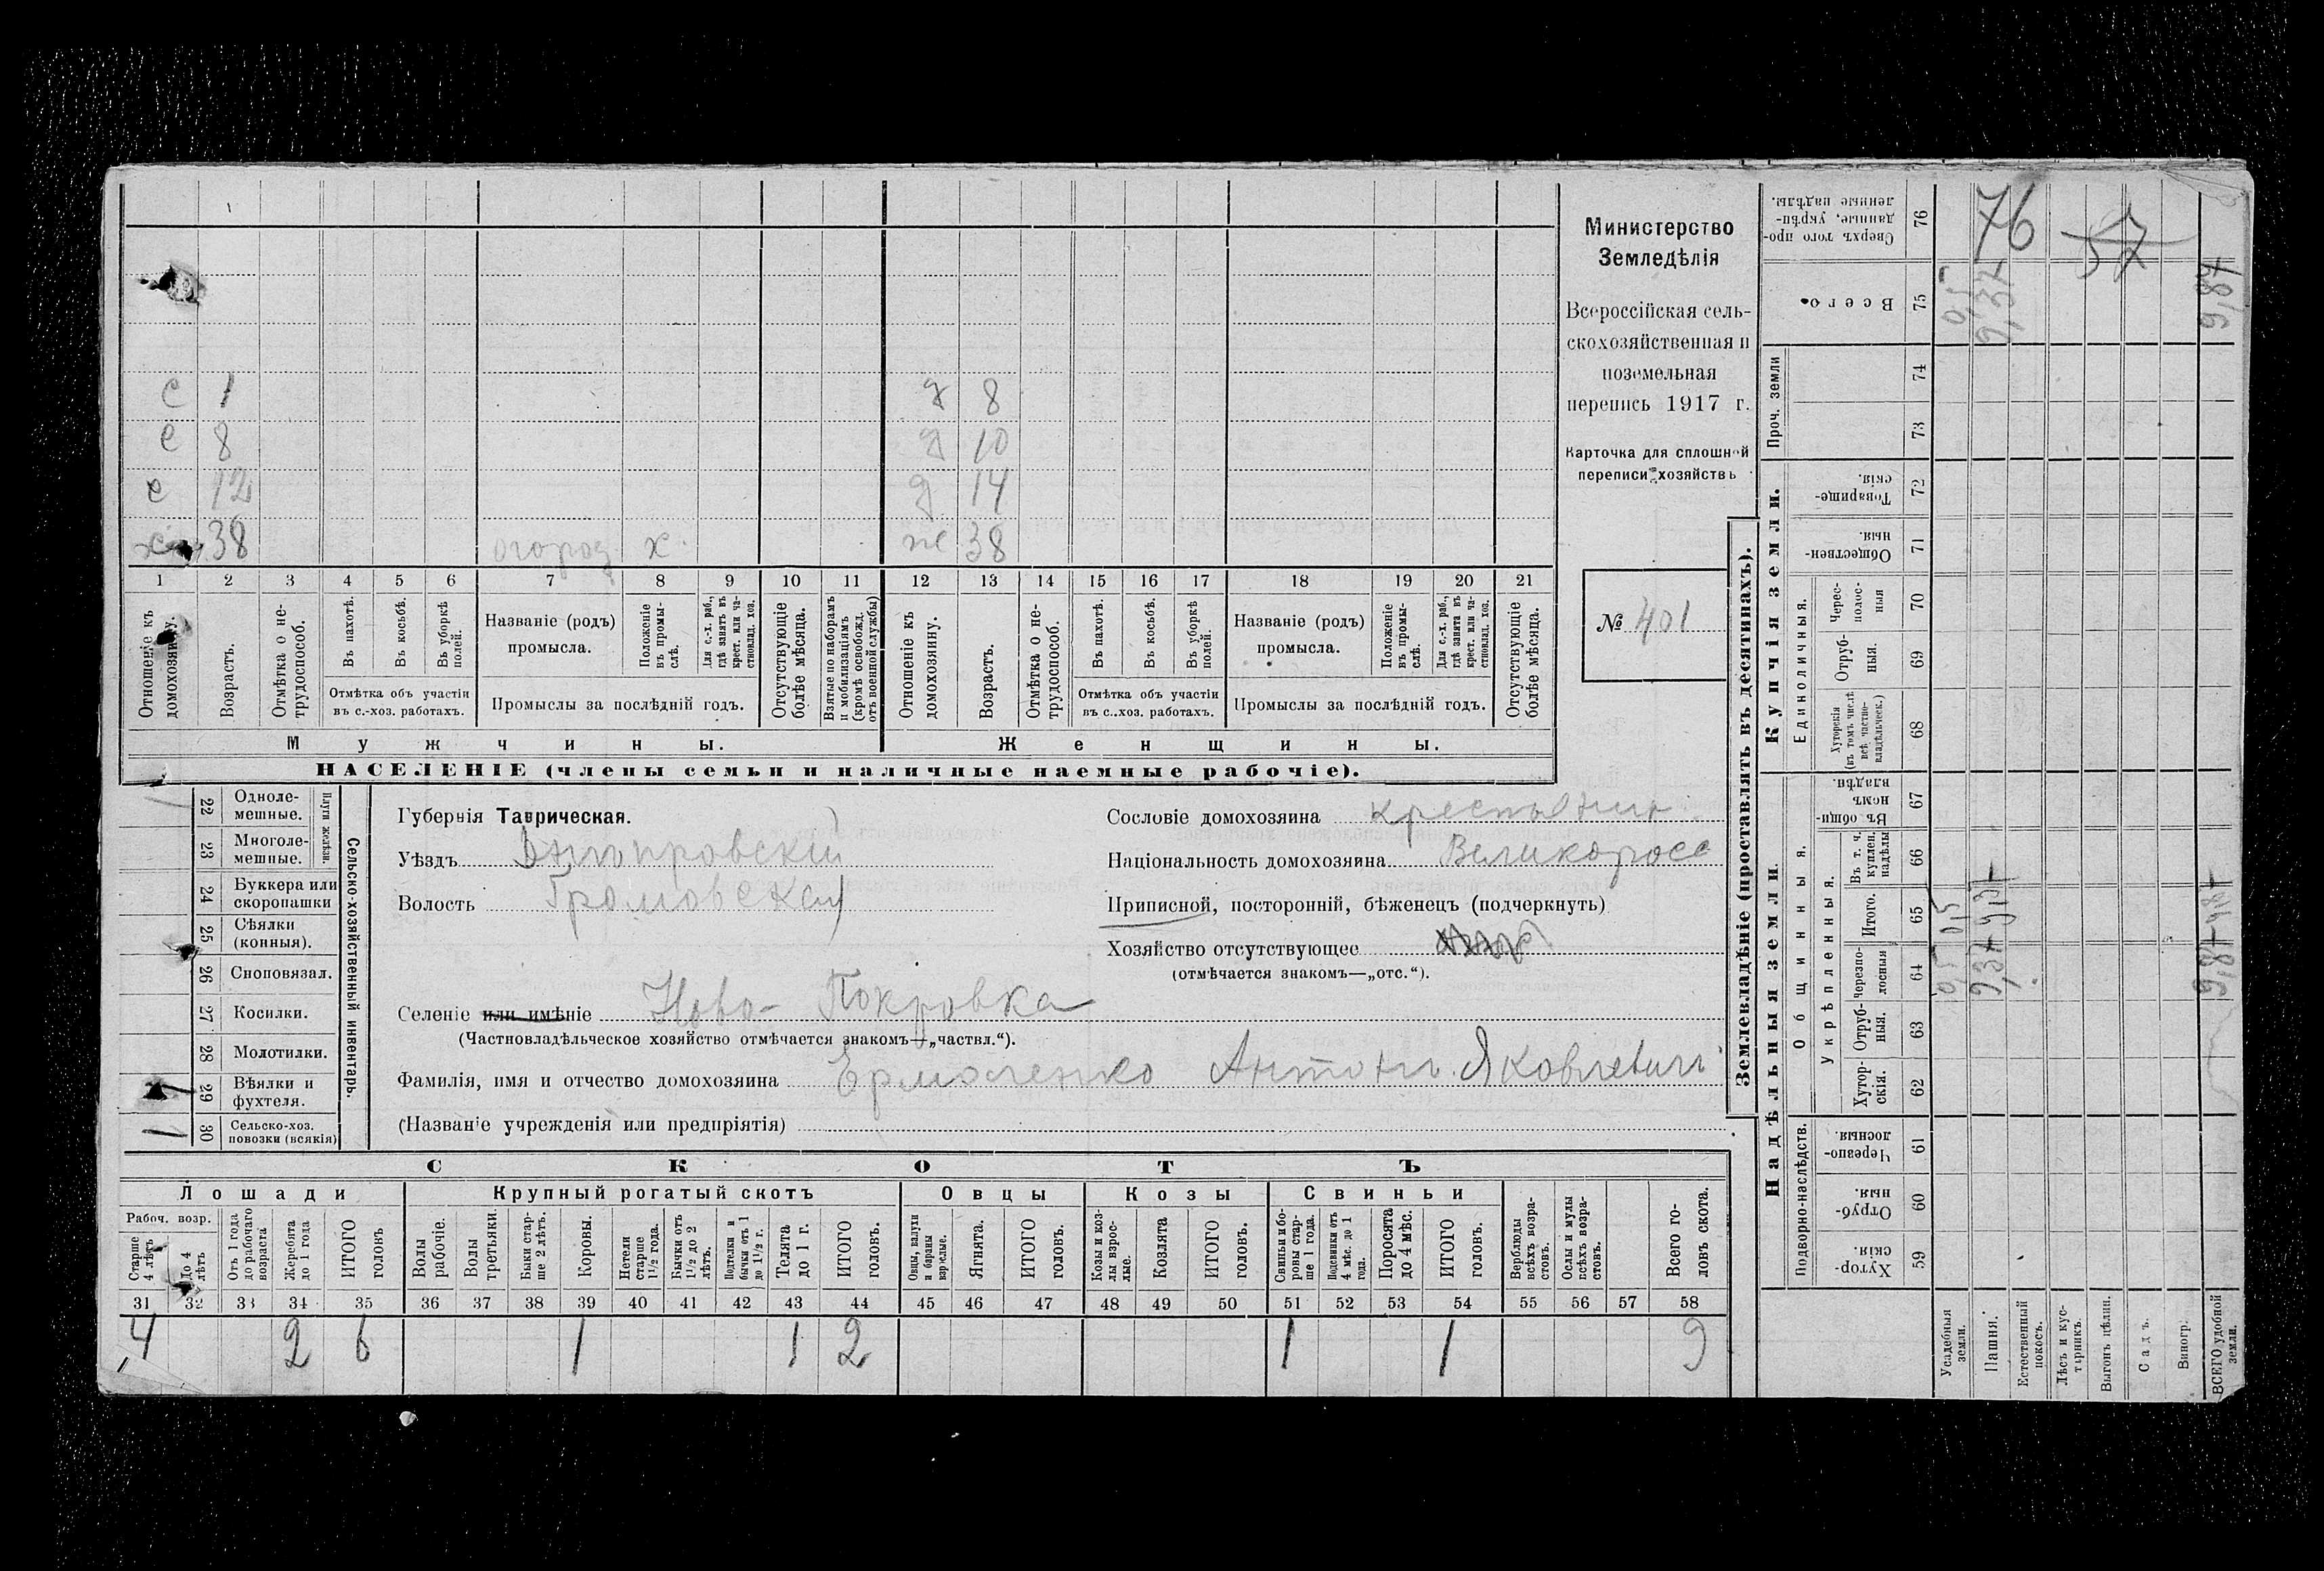 с 1 д 8
с 8 д 10
с 12 д 14
хоз 38 огород х. же 38
1 2 3 4 5 6 7 8 9 10 11 12 13 14 15 16 17 18 19 20 21
Отношеніе къ домохозяину.
Возрастъ.
Отмѣтка о нетрудоспособ.
Въ пахотѣ.
Въ косьбѣ.
Въ уборкѣ полей.
Отмѣтка объ участіи
въ с.-хоз. работахъ.
Названіе (родъ)
промысла.
Положеніе въ промыслѣ.
Для с.-х. раб., гдѣ занятъ въ крест. или частновлад. хоз.
Промыслы за послѣдній годъ.
Отсутствующіе болѣе мѣсяца.
Взятые по наборамъ и мобилизаціямъ (кромѣ освобожд. отъ военной службы)
Отношеніе къ домохозяину.
Возрастъ.
Отмѣтка о нетрудоспособ.
Въ пахотѣ.
Въ косьбѣ.
Въ уборкѣ полей.
Отмѣтка объ участіи
въ с.-хоз. работахъ.
Названіе (родъ)
промысла.
Положеніе въ промыслѣ.
Для с.-х. раб., гдѣ занята въ крест. или частновлад. хоз.
Промыслы за послѣдній годъ.
Отсутствующіе болѣе мѣсяца.
Мужчины. Женщины.
НАСЕЛЕНІЕ (члены семьи и наличные наемные рабочіе).
Министерство
Земледѣлія
Всероссійская сель-
скохозяйственная и
поземельная
перепись 1917 г.
Карточка для сплошной
переписи хозяйствъ
№ 401
22 Одноле-
мешные.
23 Многоле-
мешные.
Плуги желѣзн.
24 Буккера или
скоропашки
25 Сѣялки
(конныя).
26 Сноповязал.
27 Косилки.
28 Молотилки.
29 Вѣялки и
фухтеля.
1 30 Сельско-хоз.
повозки (всякія)
Сельско-хозяйственный инвентарь.
Губернія Таврическая.
Уѣздъ Днѣпровскій
Волость Громовская
Сословіе домохозяина крестьянин
Національность домохозяина Великоросс
Приписной, посторонній, бѣженецъ (подчеркнуть)
Хозяйство отсутствующее
(отмѣчается знакомъ—„отс.“).
Селеніе или имѣніе Ново-Покровка
(Частновладѣльческое хозяйство отмѣчается знакомъ—„частвл.“).
Фамилія, имя и отчество домохозяина Ермоленко Антонъ Яковлевичъ
(Названіе учрежденія или предпріятія)
СКОТЪ
Лошади Крупный рогатый скотъ Овцы Козы Свиньи
Рабоч. возр.
Старше 4 лѣтъ
До 4 лѣтъ
Отъ 1 года до рабочаго возраста
Жеребята до 1 года
ИТОГО головъ
Волы рабочіе.
Волы третьяки.
Быки старше 2 лѣтъ.
Коровы.
Нетели старше 1½ года.
Бычки отъ 1½ до 2 лѣтъ.
Подтелки и бычки отъ 1 до 1½ г.
Телята до 1 г.
ИТОГО головъ.
Овцы, валухи и бараны взрослые.
Ягнята.
ИТОГО головъ.
Козы и козлы взрослые.
Козлята
ИТОГО головъ.
Свиньи и боровы старше 1 года.
Подсвинки отъ 4 мѣс. до 1 года.
Поросята до 4 мѣс.
ИТОГО головъ.
Верблюды всѣхъ возрастовъ.
Ослы и мулы всѣхъ возрастовъ.
Всего головъ скота.
31 32 33 34 35 36 37 38 39 40 41 42 43 44 45 46 47 48 49 50 51 52 53 54 55 56 57 58
4 2 6 1 1 2 1 1 9
Землевладѣніе (проставлять въ десятинахъ).
Купчія земли.
Надѣльныя земли.
Сверхъ того проданные, укрѣпленные надѣлы. 76
Всего. 75
Проч. земли 74 73
Товарищескія. 72
Общественныя. 71
Единоличныя.
Чересполосныя 70
Отрубныя. 69
Хуторскія (въ томъ числѣ всѣ частновладѣльческ.) 68
Общинныя.
Въ общинномъ владѣн. 67
Укрѣпленныя.
Въ т. ч. куплен. надѣлы 66
Итого. 65
Черезполосныя 64
Отрубныя. 63
Хуторскія. 62
Подворно-наслѣдств.
Черезполосныя. 61
Отрубныя. 60
Хуторскія. 59
Усадебныя земли. 0,5 0,5 0,5
Пашня. 9,37 9,37 9,37
Естественный покосъ.
Лѣсъ и кустарникъ.
Выгонъ цѣлин.
Садъ.
Виногр.
ВСЕГО удобной земли. 9,87 9,87 9,87
76
57